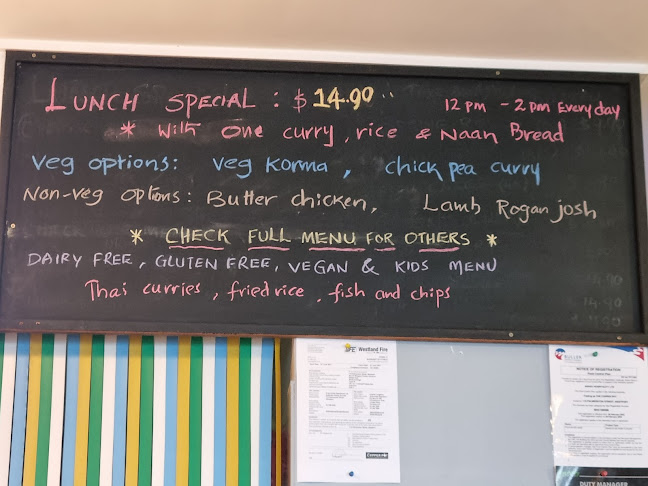 LUNCH SPECIAL : $ 14.90
12 pm - 2 pm Everyday
* With one curry, rice & Naan Bread
Veg options: Veg Korma, chick pea curry
Non-veg options: Butter chicken, Lamb Rogan josh
* CHECK FULL MENU FOR OTHERS *
DAIRY FREE, GLUTEN FREE, VEGAN & KIDS MENU
Thai curries, fried rice, fish and chips
Westland Fire
BULLER
NOTICE OF REGISTRATION
DUTY MANAGER